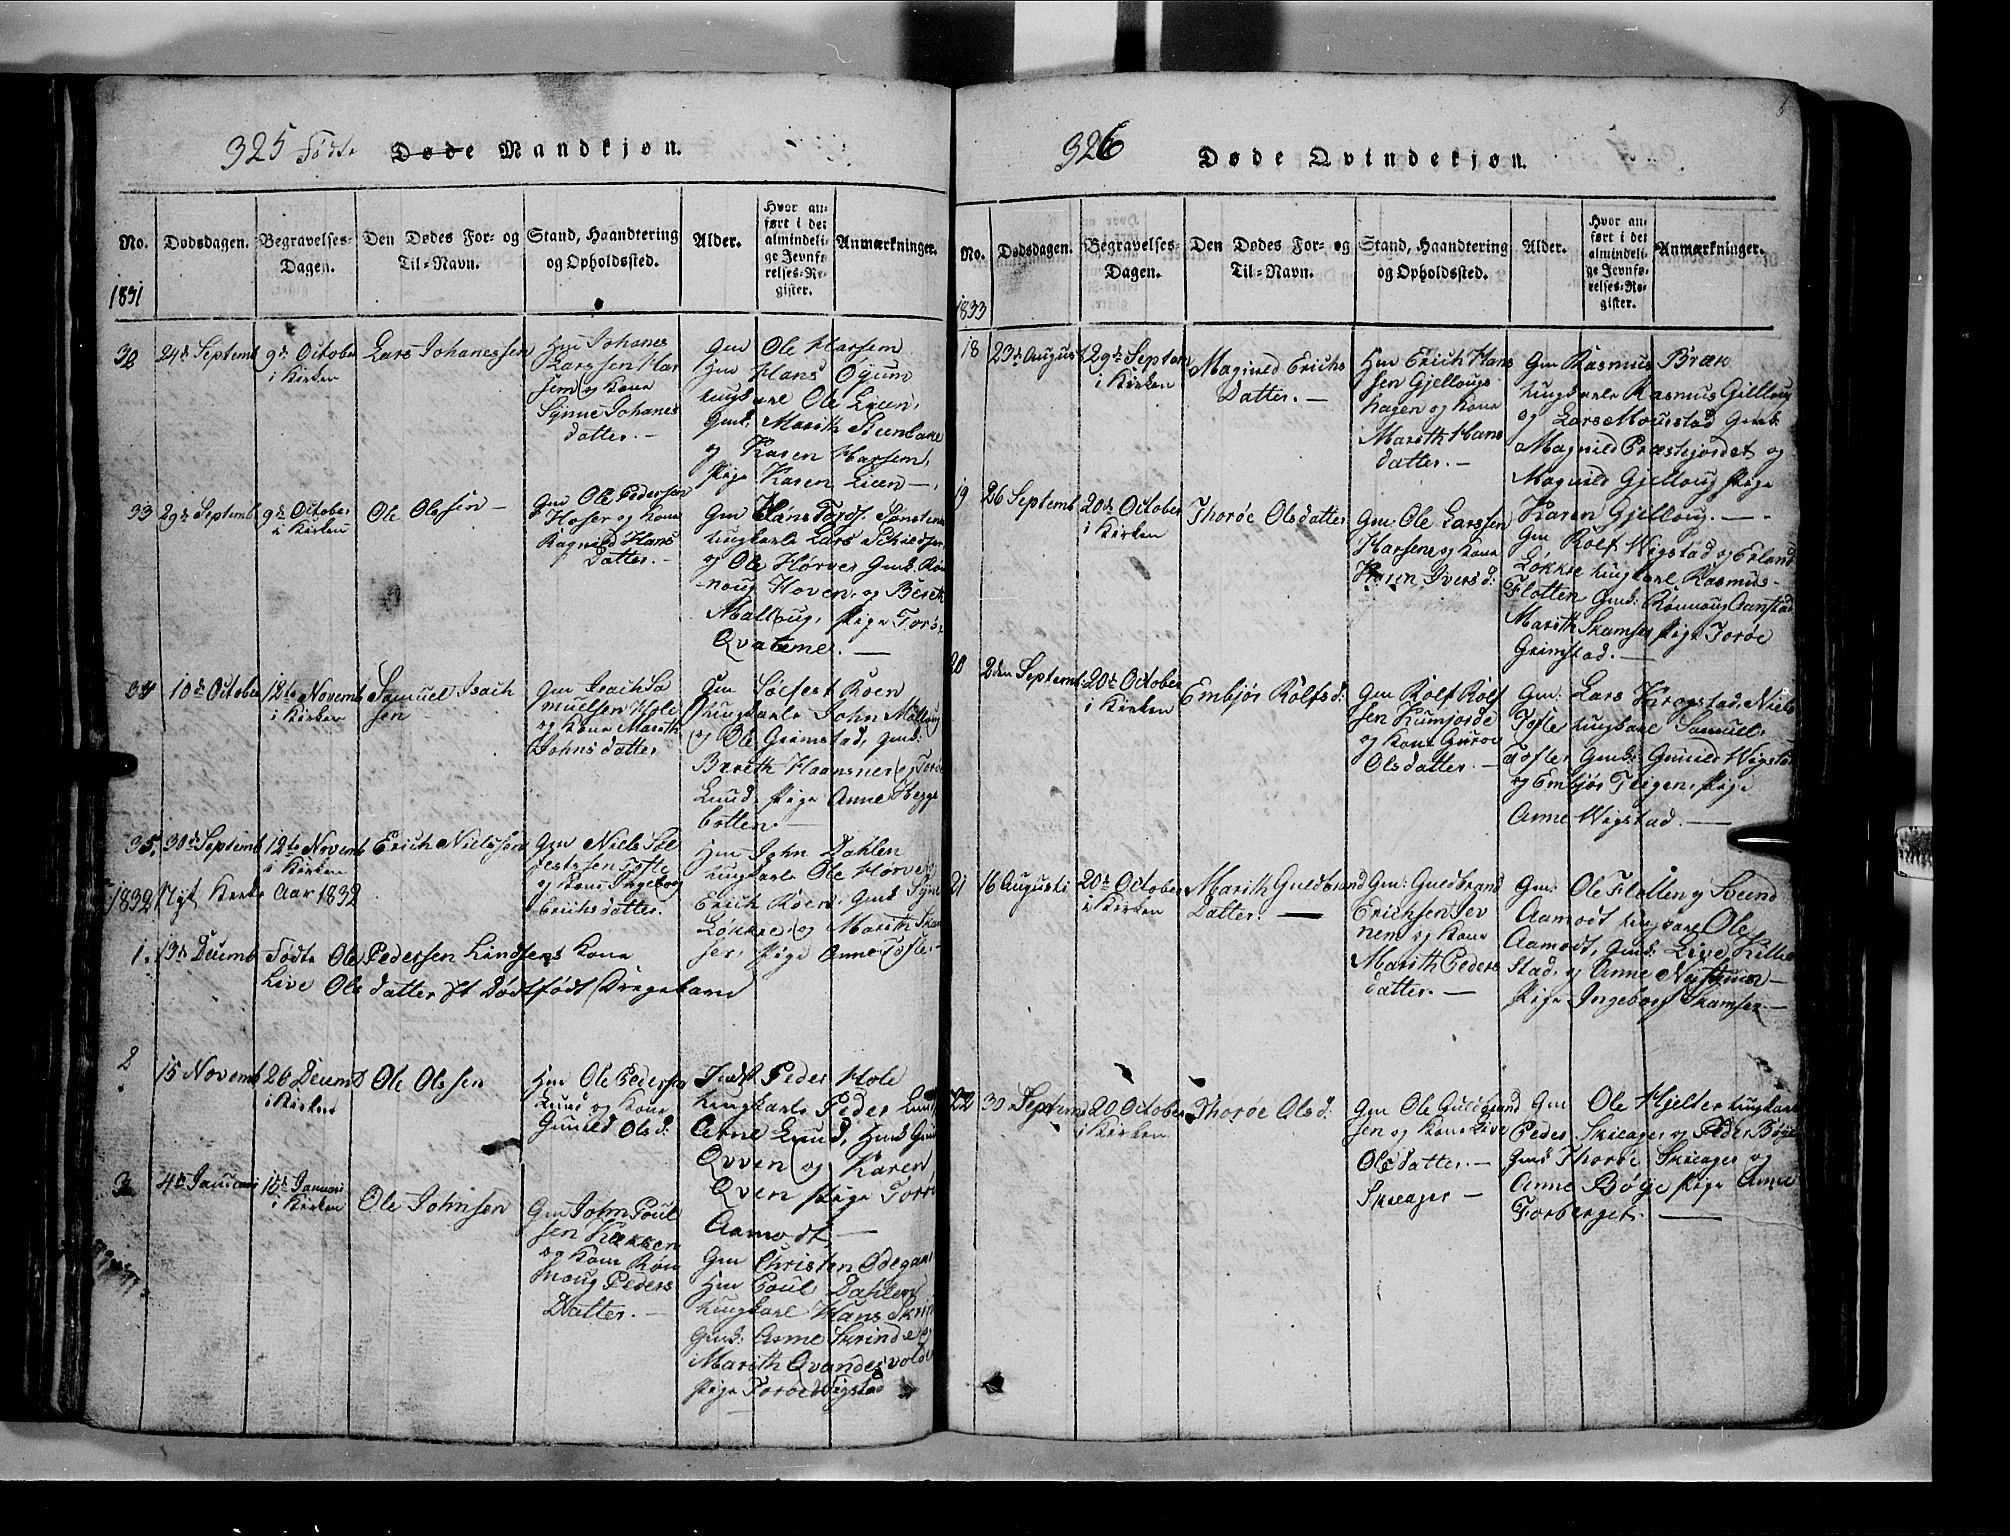 325 Födte Døde Mandkjøn.
No. Dødsdagen. Begravelses-Dagen. Den Dødes For- og Til-Navn. Stand, Haandtering og Opholdssted. Alder. Hvor anført i det almindelige Jevnførelses-Register. Anmærkninger.
1831
32 24de Septemb 9de October i Kirken Lars Johanessen
Hm Johanes
Larssen Har
sem og Kone
Synne Johanes
datter. —
Gm Ole Harsem
Hm Hans Øyum
ungkarl Ole Lien,
Gmk: Marith Steenbake
og Karen Harsem,
Pige Karen Lien —
33 29de Septemb 9de October i Kirken Ole Olssen —
Gm Ole Pedersen
og Kone
Ragnild Hans
Datter. —
Gm Hans
ungkarl Lars
og Ole Hørven Gmk. Rön
noug Hoven, og Bereth
Mølloug, Pige Toröe
Qvaleme. —
34 10de October 12te Novemb i Kirken Samuel Isach
sen —
Gm Isach Sa
muelsen Hole
og Kone Marith
Johnsdatter
Gm Solfest Röen
ungkarle John Mölloug
og Ole Grimstad, Gmk:
Bereth Haansnes og Toröe
Lund, Pige Anne Hegge
botten —
35. 30de Septemb 12te Novemb i Kirken Erich Nielssen
Gm Niels Sol
festssen Tofte
og Kone Ingeborg
Erichsdatter.
Hm John Dahlen
ungkarle Ole Hörven
Erich Röen, Gmk Synne
Løkke og Marith Skam
ser, Pige Anne Tofte —
1832 Nyt Kirke Aar 1832
1. 13de Decemb Födte Ole Pedersen Lindsens Kone
Live Olsdatter et Dødtfödt Drengebarn
2 15 Novemb 26 Decemb i Kirken Ole Olssen
Hm Ole Pedersen
Lund og Kone
Gunild Olsd:
Peder Hole
ungkarle Peder Lund,
Arne Lund, Hmk Guri
Qvven og Karen
Qven Pige Toröe
Aamodt. —
3 4de Januari 15de Januari i Kirken Ole Johnsen
Gm John Poul
sen Kækken
og Kone Rön
noug Peders
Datter. —
Gm Christen Ødegaar
Hm Poul Dahlen
ungkarl Hans
Gmk: Anne Skrinde og
Marith Qvandesvolde
Pige Toröe Wigstad
326 Døde Qvindekjøn.
No. Dødsdagen. Begravelses-Dagen. Den Dødes For- og Til-Navn. Stand, Haandtering og Opholdssted. Alder. Hvor anført i det almindelige Jevnførelses-Register. Anmærkninger.
1833
18 23de August 29de Septem i Kirken Magnild Erichs
Datter. —
Hm Erich Hans
sen Gjellougs
hagen og Kone
Marith Hans
datter. —
Gm Rasmus Bræk
ungkarle Rasmus Gjelloug
og Lars Mourstad Gmk:
Magnild Præstejordet og
Magnild Gjelloug Pige
Karen Gjelloug. —
19 26 Septemb 20de October i Kirken Thoröe Olsdatter
Gm: Ole Larssen
Harsem og Kone
Karen Iversd:
Gm Rolf Wigstad og Erland
Løkke ungkarl Rasmus
Flotten Gmk: Rönnoug Aanstad
Marith Skamser Pige Toröe
Grimstad. —
20 2den Septemb 20de October i Kirken Embjør Rolfsd:
Gm Rolf Rolf
sen Kumjorde
og Kone Guroe
Olsdatter. —
Gm: Lars Krogstad, Niels
Tofte ungkarl Samuel
Tofte, Gmk: Gunild Wigstad
og Embjør Teigen, Pige
Anne Wigstad. —
21 16 Augusti 20de October i Kirken Marith Guldbrand
Datter. —
Gm: Guldbrand
Erichsen Jev
nem og Kone
Marith Peders
datter. —
Gm: Ole Flotten og Svend
Aamodt ungkarl Ole
Aamodt, Gmk: Live Kille
stad, og Anne Nystuen —
Pige Ingeborg Skamser —
22 30 Septemb 20 October i Kirken Thoröe Olsd:
Gm Ole Guldbrand
sen og Kone Live
Olsdatter. —
Skieager —
Gm Ole Hjelter ungkarl
Peder Skieager og Peder Böye
Gmk Thoröe Skieager og
Anne Böye Pige Anne
Forberget. —